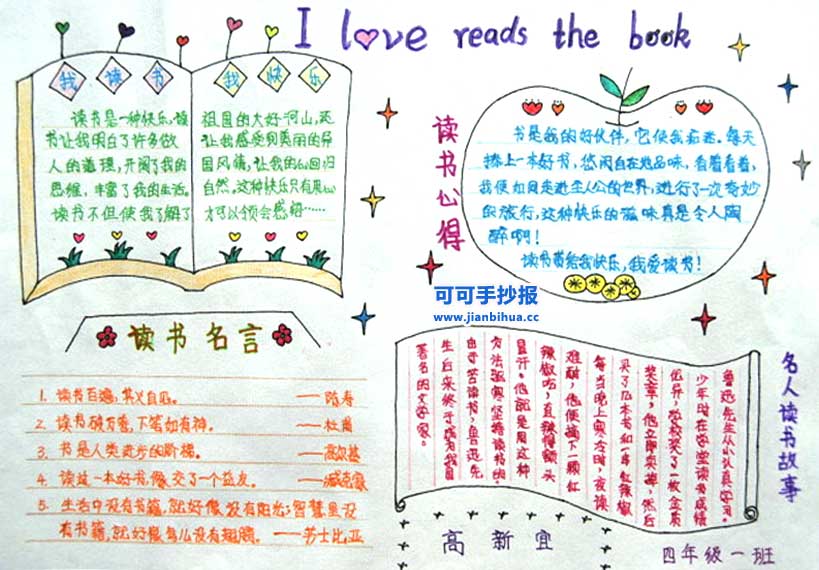 I love reads the book
我读书 我快乐
读书是一种快乐,读
书让我明白了许多做
人的道理,开阔了我的
思维,丰富了我的生活。
读书不但使我了解了
祖国的大好河山,还
让我感受到美丽的异
国风情,让我的心回归
自然。这种快乐只有用心
才可以领会感悟……
读书心得
书是我的好伙伴,它使我着迷。每天
捧上一本好书,悠闲自在地品味,看着看着,
我便如同走进主人公的世界,进行了一次奇妙
的旅行,这种快乐的滋味真是令人陶
醉啊!
读书带给我快乐,我爱读书!
可可手抄报
www.jianbihua.cc
读书名言
1. 读书百遍,其义自见。 ——陈寿
2. 读书破万卷,下笔如有神。 ——杜甫
3. 书是人类进步的阶梯。 ——高尔基
4. 读过一本好书,像交了一个益友。 ——臧克家
5. 生活中没有书籍,就好像没有阳光;智慧里没
有书籍,就好像鸟儿没有翅膀。 ——莎士比亚
名人读书故事
鲁迅先生从小认真学习。
少年时在学堂读书成绩
优异,学校奖了一枚金质
奖章,他立即卖掉,然后
买了几本书和一串红辣椒
每当晚上寒冷时,夜读
难耐,他便摘下一颗红
辣椒吃,直辣得额头
冒汗。他就是用这种
方法驱寒坚持读书的
由于苦读书,鲁迅先
生后来终于成为我国
著名的文学家。
高新宜
四年级一班